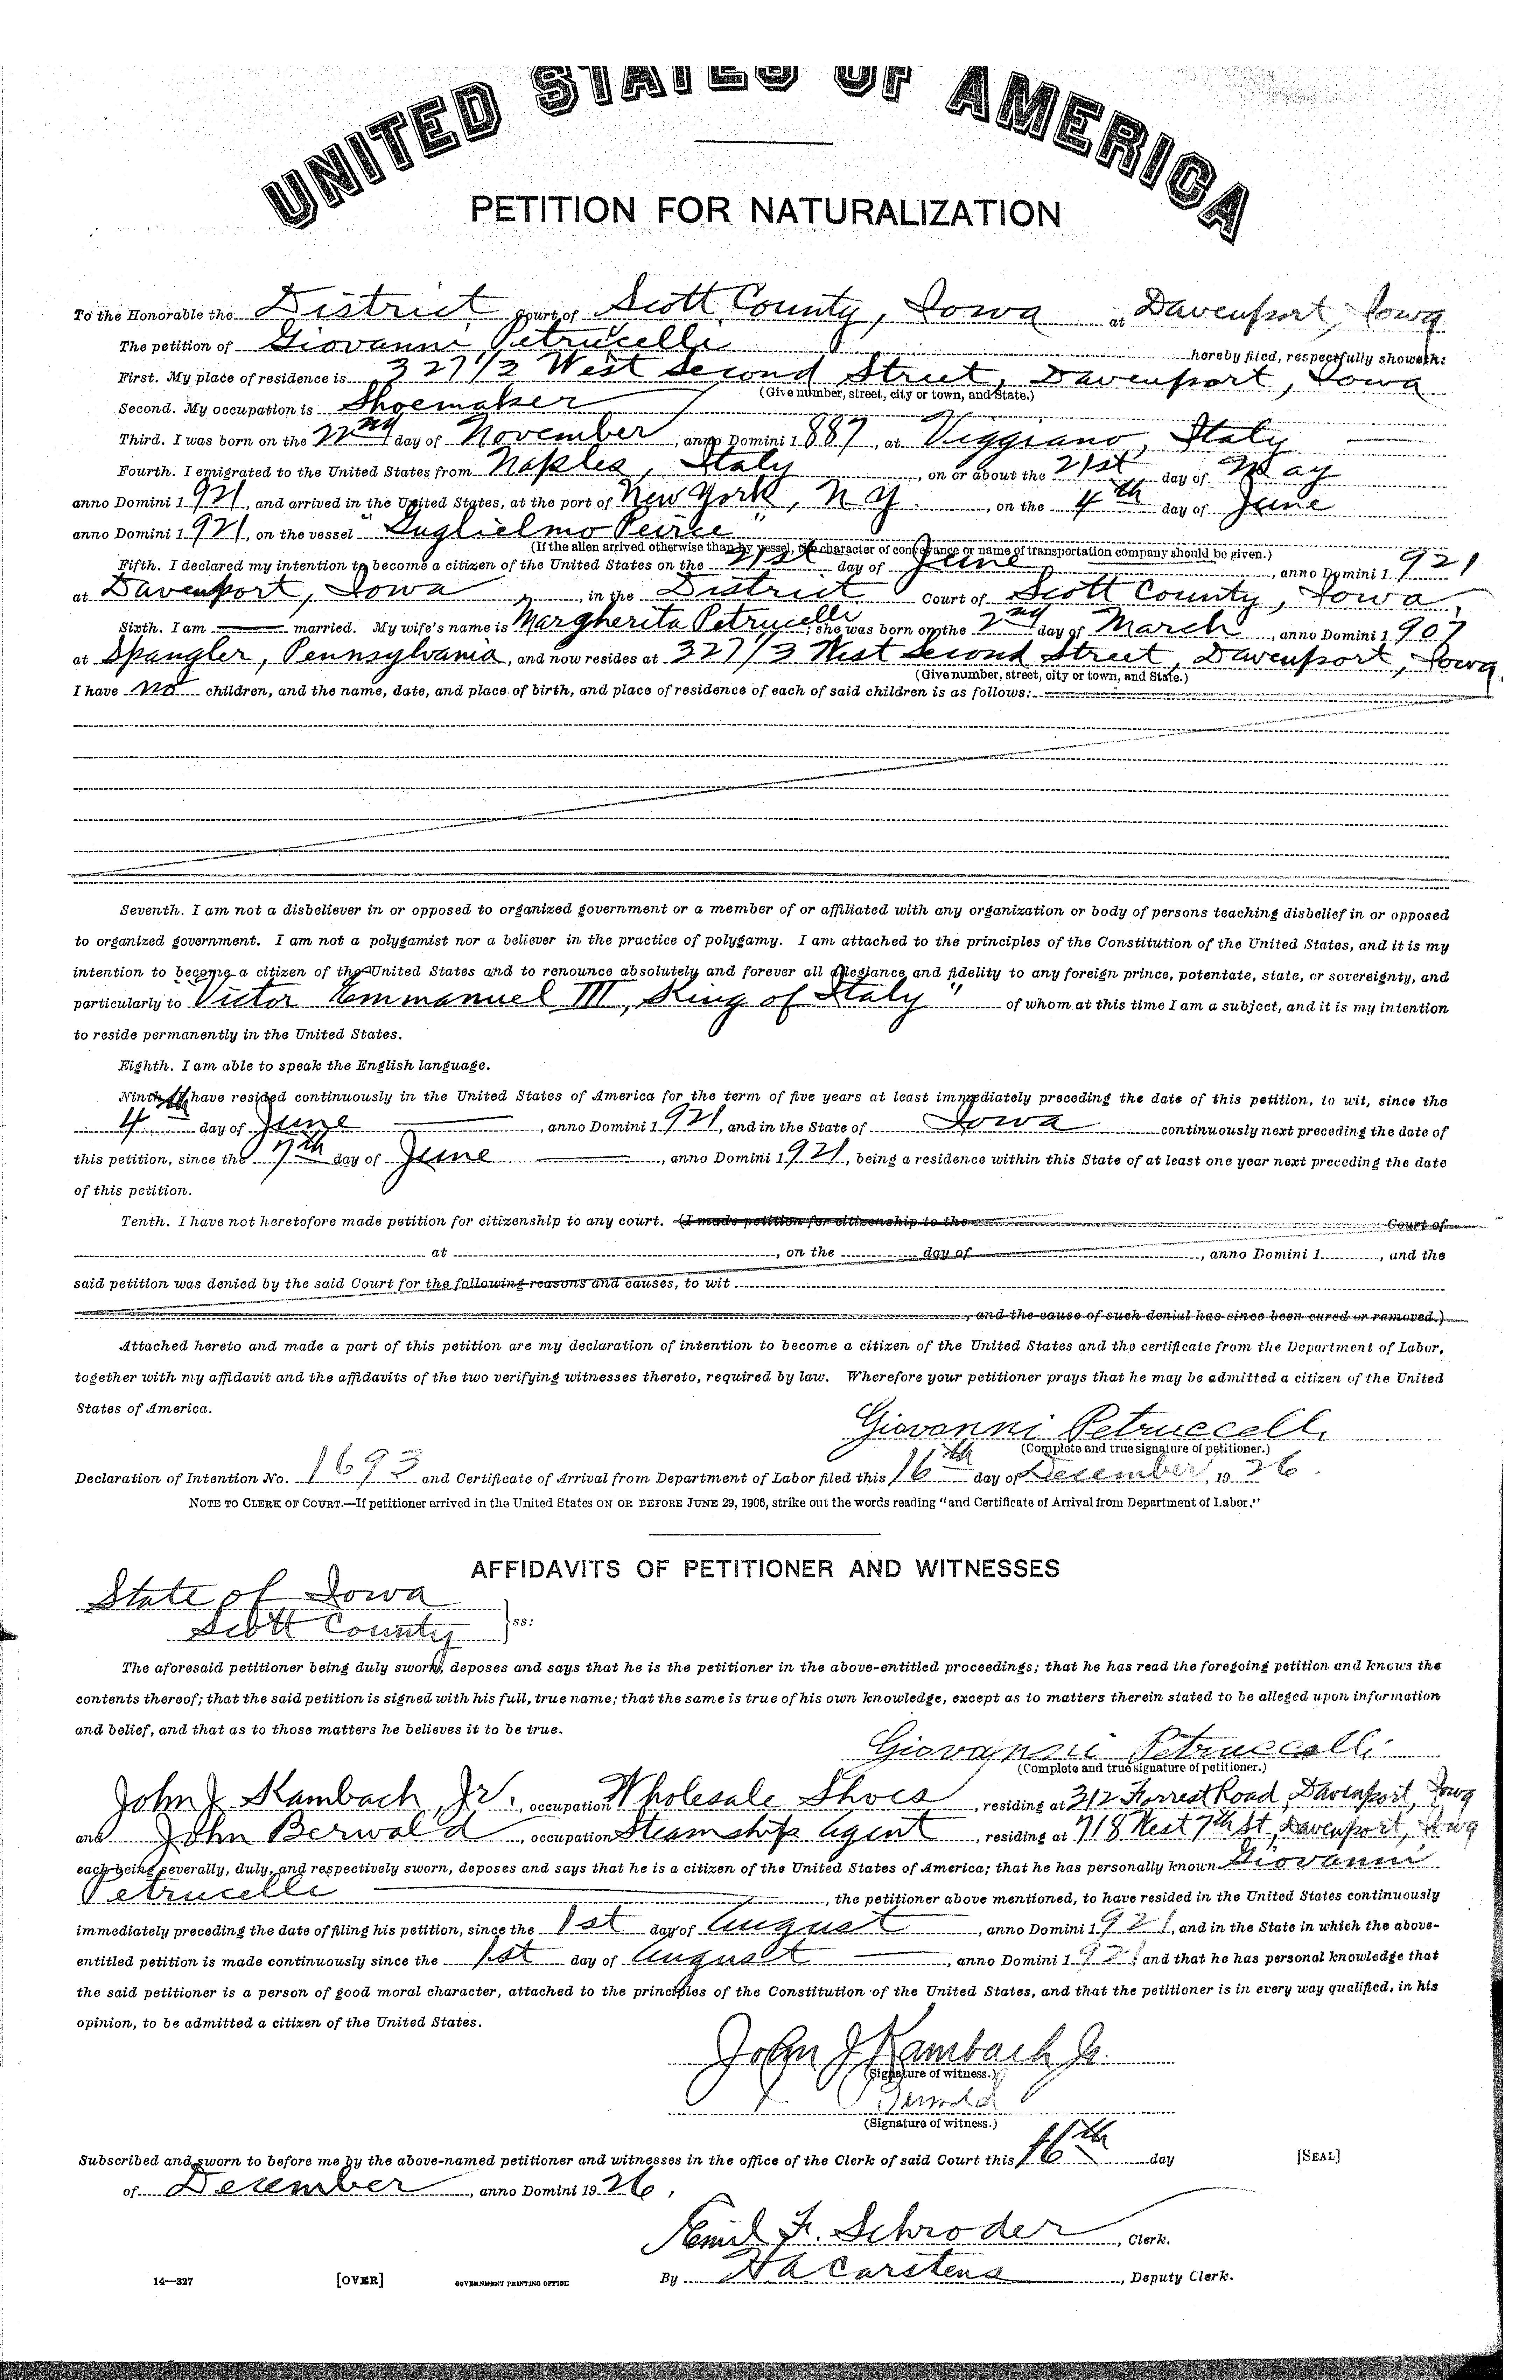 UNITED STATES OF AMERICA
PETITION FOR NATURALIZATION
To the Honorable the District Court of Scott County, Iowa at Davenport, Iowa
The petition of Giovanni Petrucelli hereby filed, respectfully showeth:
First. My place of residence is 327 1/2 West Second Street, Davenport, Iowa
(Give number, street, city or town, and State.)
Second. My occupation is Shoemaker
Third. I was born on the 22nd day of November, anno Domini 1887, at Viggiano, Italy
Fourth. I emigrated to the United States from Naples, Italy, on or about the 21st day of May
anno Domini 1921, and arrived in the United States, at the port of New York, N Y., on the 4th day of June
anno Domini 1921, on the vessel "Guglielmo Peirce"
(If the alien arrived otherwise than by vessel, the character of conveyance or name of transportation company should be given.)
Fifth. I declared my intention to become a citizen of the United States on the 21st day of June, anno Domini 1921
at Davenport, Iowa, in the District Court of Scott County, Iowa,
Sixth. I am married. My wife's name is Margherita Petrucelli; she was born on the 2nd day of March, anno Domini 1907
at Spangler, Pennsylvania, and now resides at 327 1/2 West Second Street, Davenport, Iowa
(Give number, street, city or town, and State.)
I have no children, and the name, date, and place of birth, and place of residence of each of said children is as follows:
Seventh. I am not a disbeliever in or opposed to organized government or a member of or affiliated with any organization or body of persons teaching disbelief in or opposed
to organized government. I am not a polygamist nor a believer in the practice of polygamy. I am attached to the principles of the Constitution of the United States, and it is my
intention to become a citizen of the United States and to renounce absolutely and forever all allegiance and fidelity to any foreign prince, potentate, state, or sovereignty, and
particularly to "Victor Emmanuel III, King of Italy" of whom at this time I am a subject, and it is my intention
to reside permanently in the United States.
Eighth. I am able to speak the English language.
Ninth. I have resided continuously in the United States of America for the term of five years at least immediately preceding the date of this petition, to wit, since the
4th day of June, anno Domini 1921, and in the State of Iowa continuously next preceding the date of
this petition, since the 7th day of June, anno Domini 1921, being a residence within this State of at least one year next preceding the date
of this petition.
Tenth. I have not heretofore made petition for citizenship to any court. (I made petition for citizenship to the Court of
at , on the day of , anno Domini 1 , and the
said petition was denied by the said Court for the following reasons and causes, to wit
, and the cause of such denial has since been cured or removed.)
Attached hereto and made a part of this petition are my declaration of intention to become a citizen of the United States and the certificate from the Department of Labor,
together with my affidavit and the affidavits of the two verifying witnesses thereto, required by law. Wherefore your petitioner prays that he may be admitted a citizen of the United
States of America.
Giovanni Petruccelli
(Complete and true signature of petitioner.)
Declaration of Intention No. 1693 and Certificate of Arrival from Department of Labor filed this 16th day of December, 1926.
NOTE TO CLERK OF COURT.—If petitioner arrived in the United States ON OR BEFORE JUNE 29, 1906, strike out the words reading "and Certificate of Arrival from Department of Labor."
AFFIDAVITS OF PETITIONER AND WITNESSES
State of Iowa
Scott County } ss:
The aforesaid petitioner being duly sworn, deposes and says that he is the petitioner in the above-entitled proceedings; that he has read the foregoing petition and knows the
contents thereof; that the said petition is signed with his full, true name; that the same is true of his own knowledge, except as to matters therein stated to be alleged upon information
and belief, and that as to those matters he believes it to be true.
Giovanni Petruccelli
(Complete and true signature of petitioner.)
John J. Kambach, Jr., occupation Wholesale Shoes, residing at 312 Forrest Road, Davenport, Iowa
and John Berwald, occupation Steamship Agent, residing at 718 West 7th St, Davenport, Iowa
each being severally, duly, and respectively sworn, deposes and says that he is a citizen of the United States of America; that he has personally known Giovanni
Petrucelli, the petitioner above mentioned, to have resided in the United States continuously
immediately preceding the date of filing his petition, since the 1st day of August, anno Domini 1921, and in the State in which the above-
entitled petition is made continuously since the 1st day of August, anno Domini 1921, and that he has personal knowledge that
the said petitioner is a person of good moral character, attached to the principles of the Constitution of the United States, and that the petitioner is in every way qualified, in his
opinion, to be admitted a citizen of the United States.
John J Kambach Jr.
(Signature of witness.)
(Signature of witness.)
Subscribed and sworn to before me by the above-named petitioner and witnesses in the office of the Clerk of said Court this 16th day [SEAL]
of December, anno Domini 1926.
Emil F. Schroder, Clerk.
14—327 [OVER] GOVERNMENT PRINTING OFFICE By H A Carstens, Deputy Clerk.